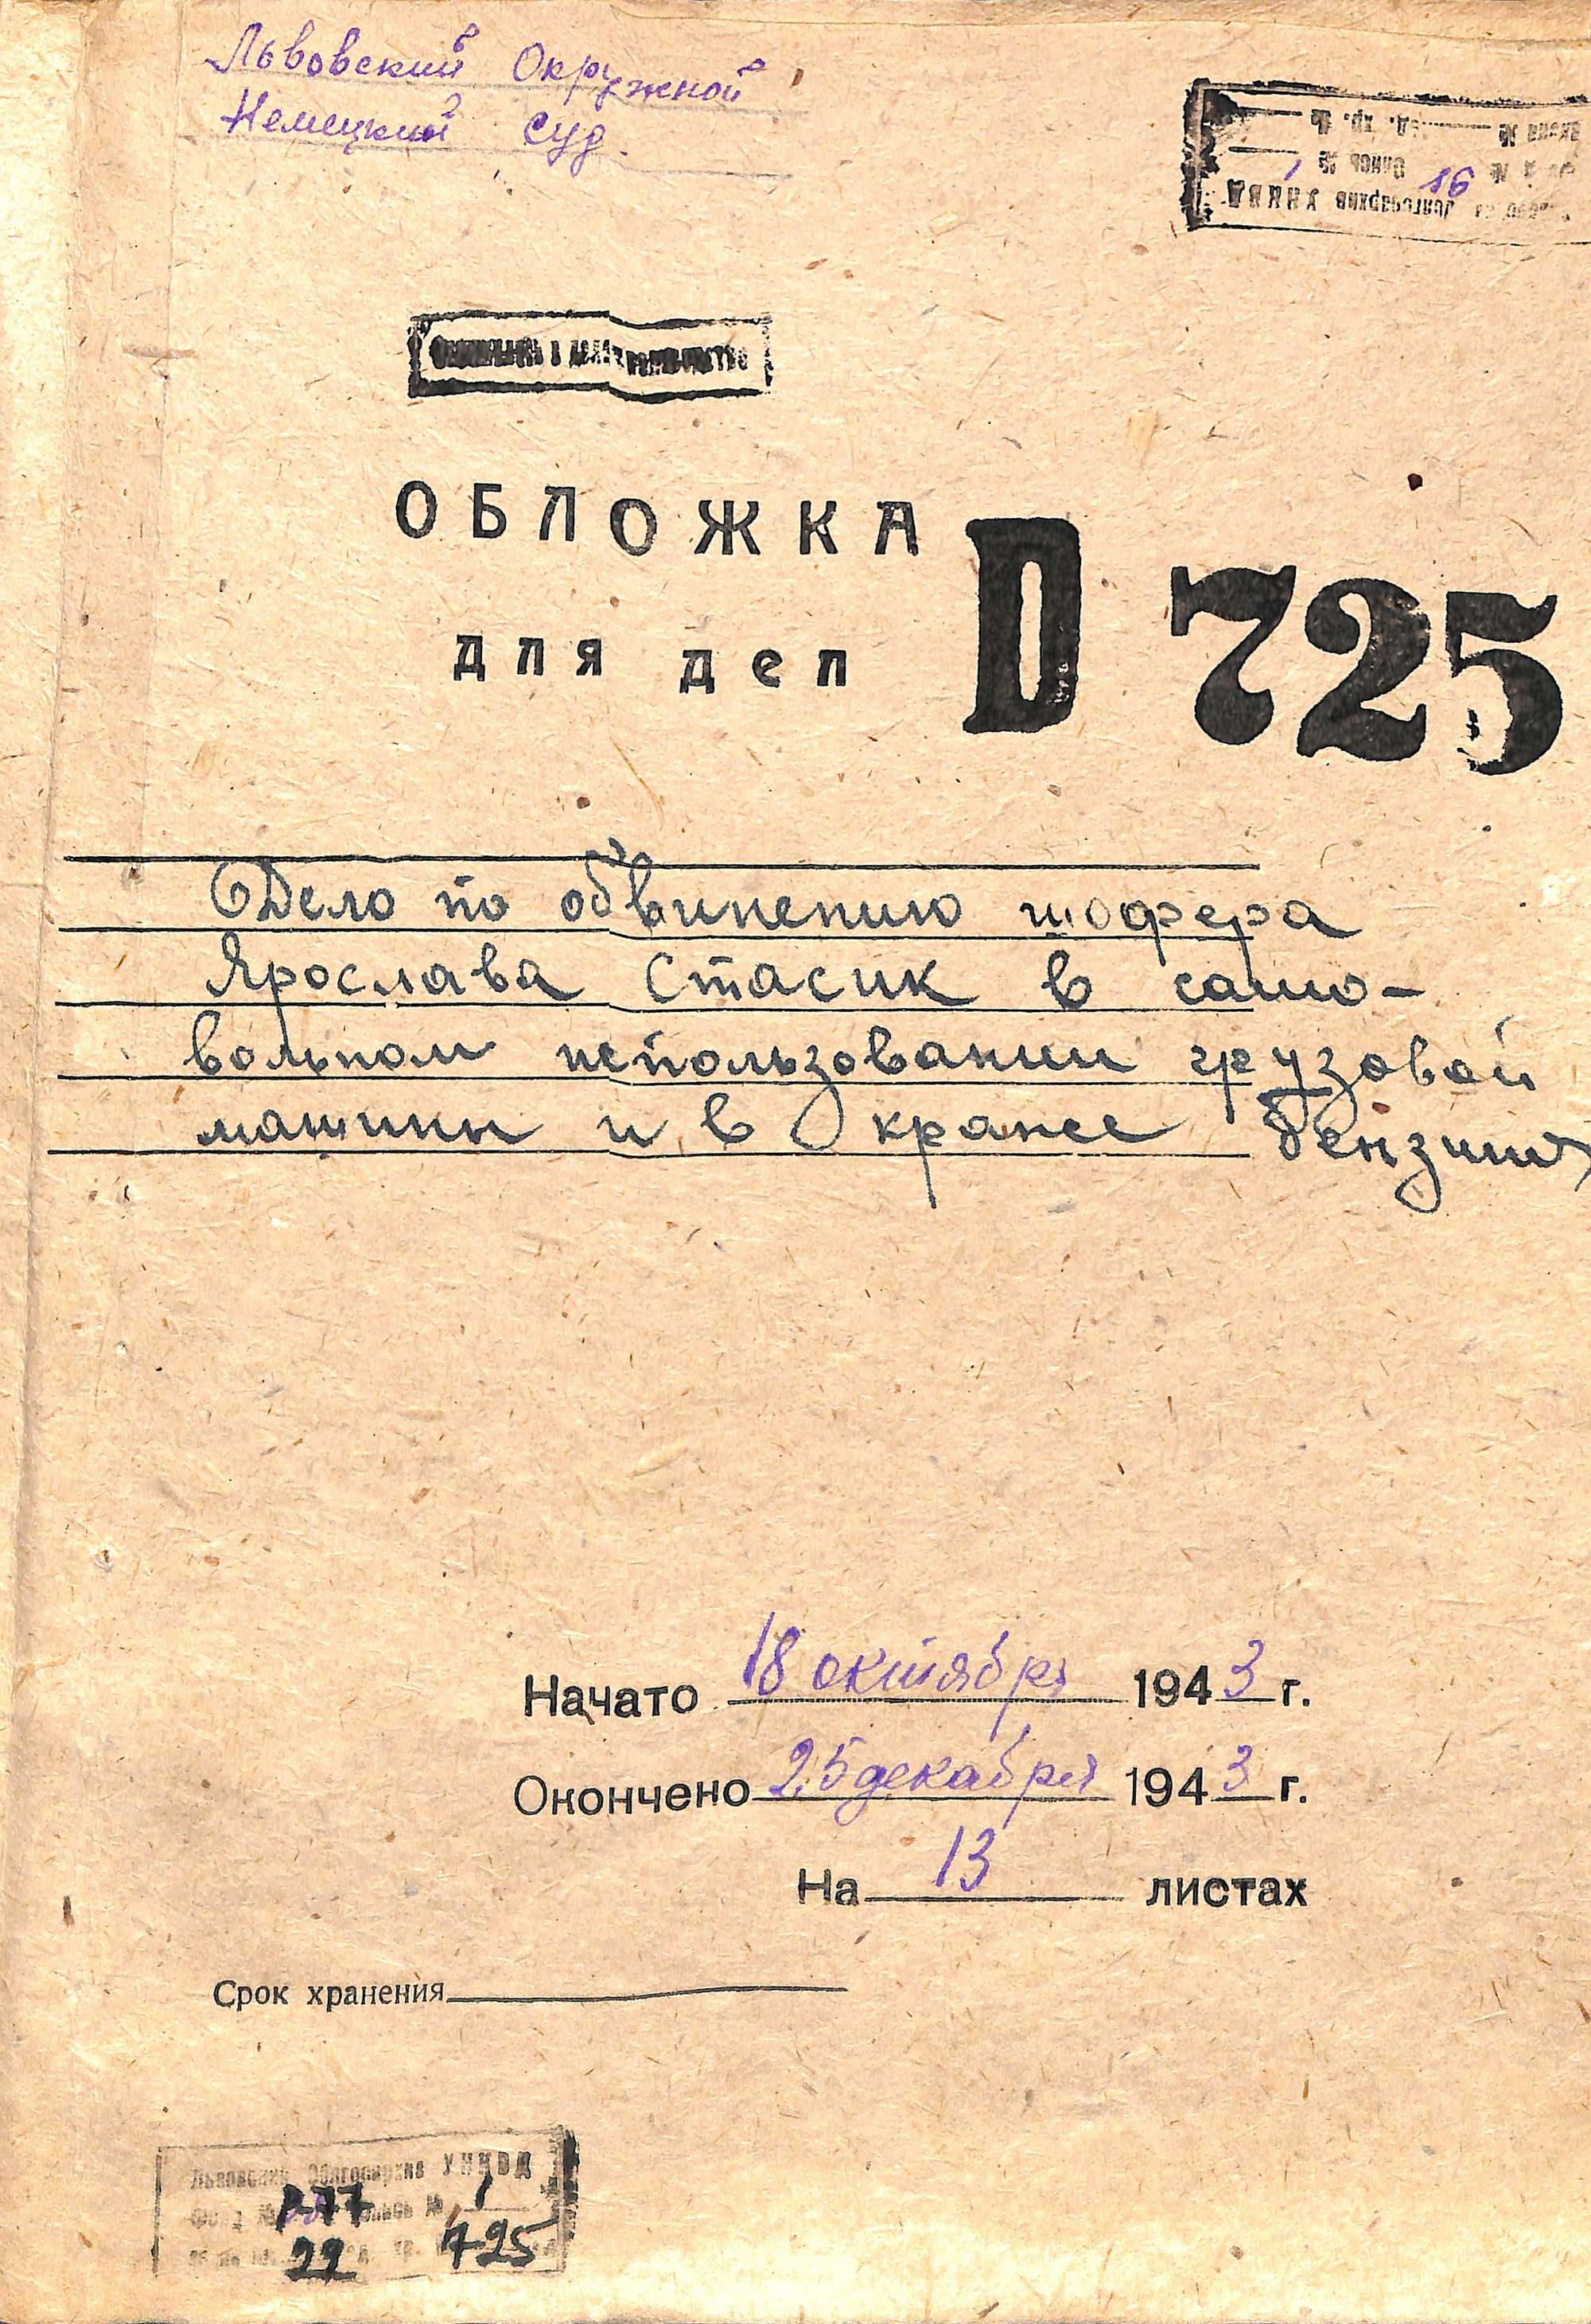 Львовский Окружной
Немецкий Суд.
ОБЛОЖКА
для дел
D 725
Дело по обвинению шофера
Ярослава Стасик в само-
вольном использовании грузовой
машины и в краже бензина
Начато 18 октября 1943 г.
Окончено 25 декабря 1943 г.
На 13 листах
Срок хранения
Львовский Облгосархив УНКВД
Фонд № Р77 Опись № 1
22 725
Облгосархив УНКВД
16
Опись № 1
ед. хр. №